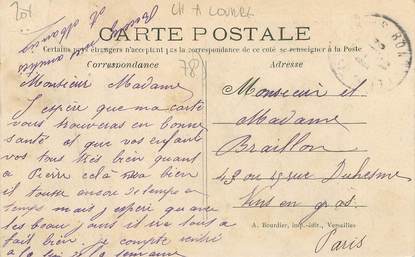 CARTE POSTALE
Certains pays étrangers n'acceptant pas la correspondance de ce coté se renseigner à la Poste
Correspondance
Adresse
78
Monsieur Madame
J espère que ma carte
vous trouveras en bonne
santé et que vos enfant
vos tous très bien quant
a Pierre cela va bien
il tousse encore de temps a
temps mais j espère que avec
les beau jours il ira tous a
fait bien. je compte rentré
a la fin de la semaine
Monsieur et
Madame
Braillon
43 ou 45 rue Duhesme
Vins en gros.
Paris
A. Bourdier, imp.-édit., Versailles